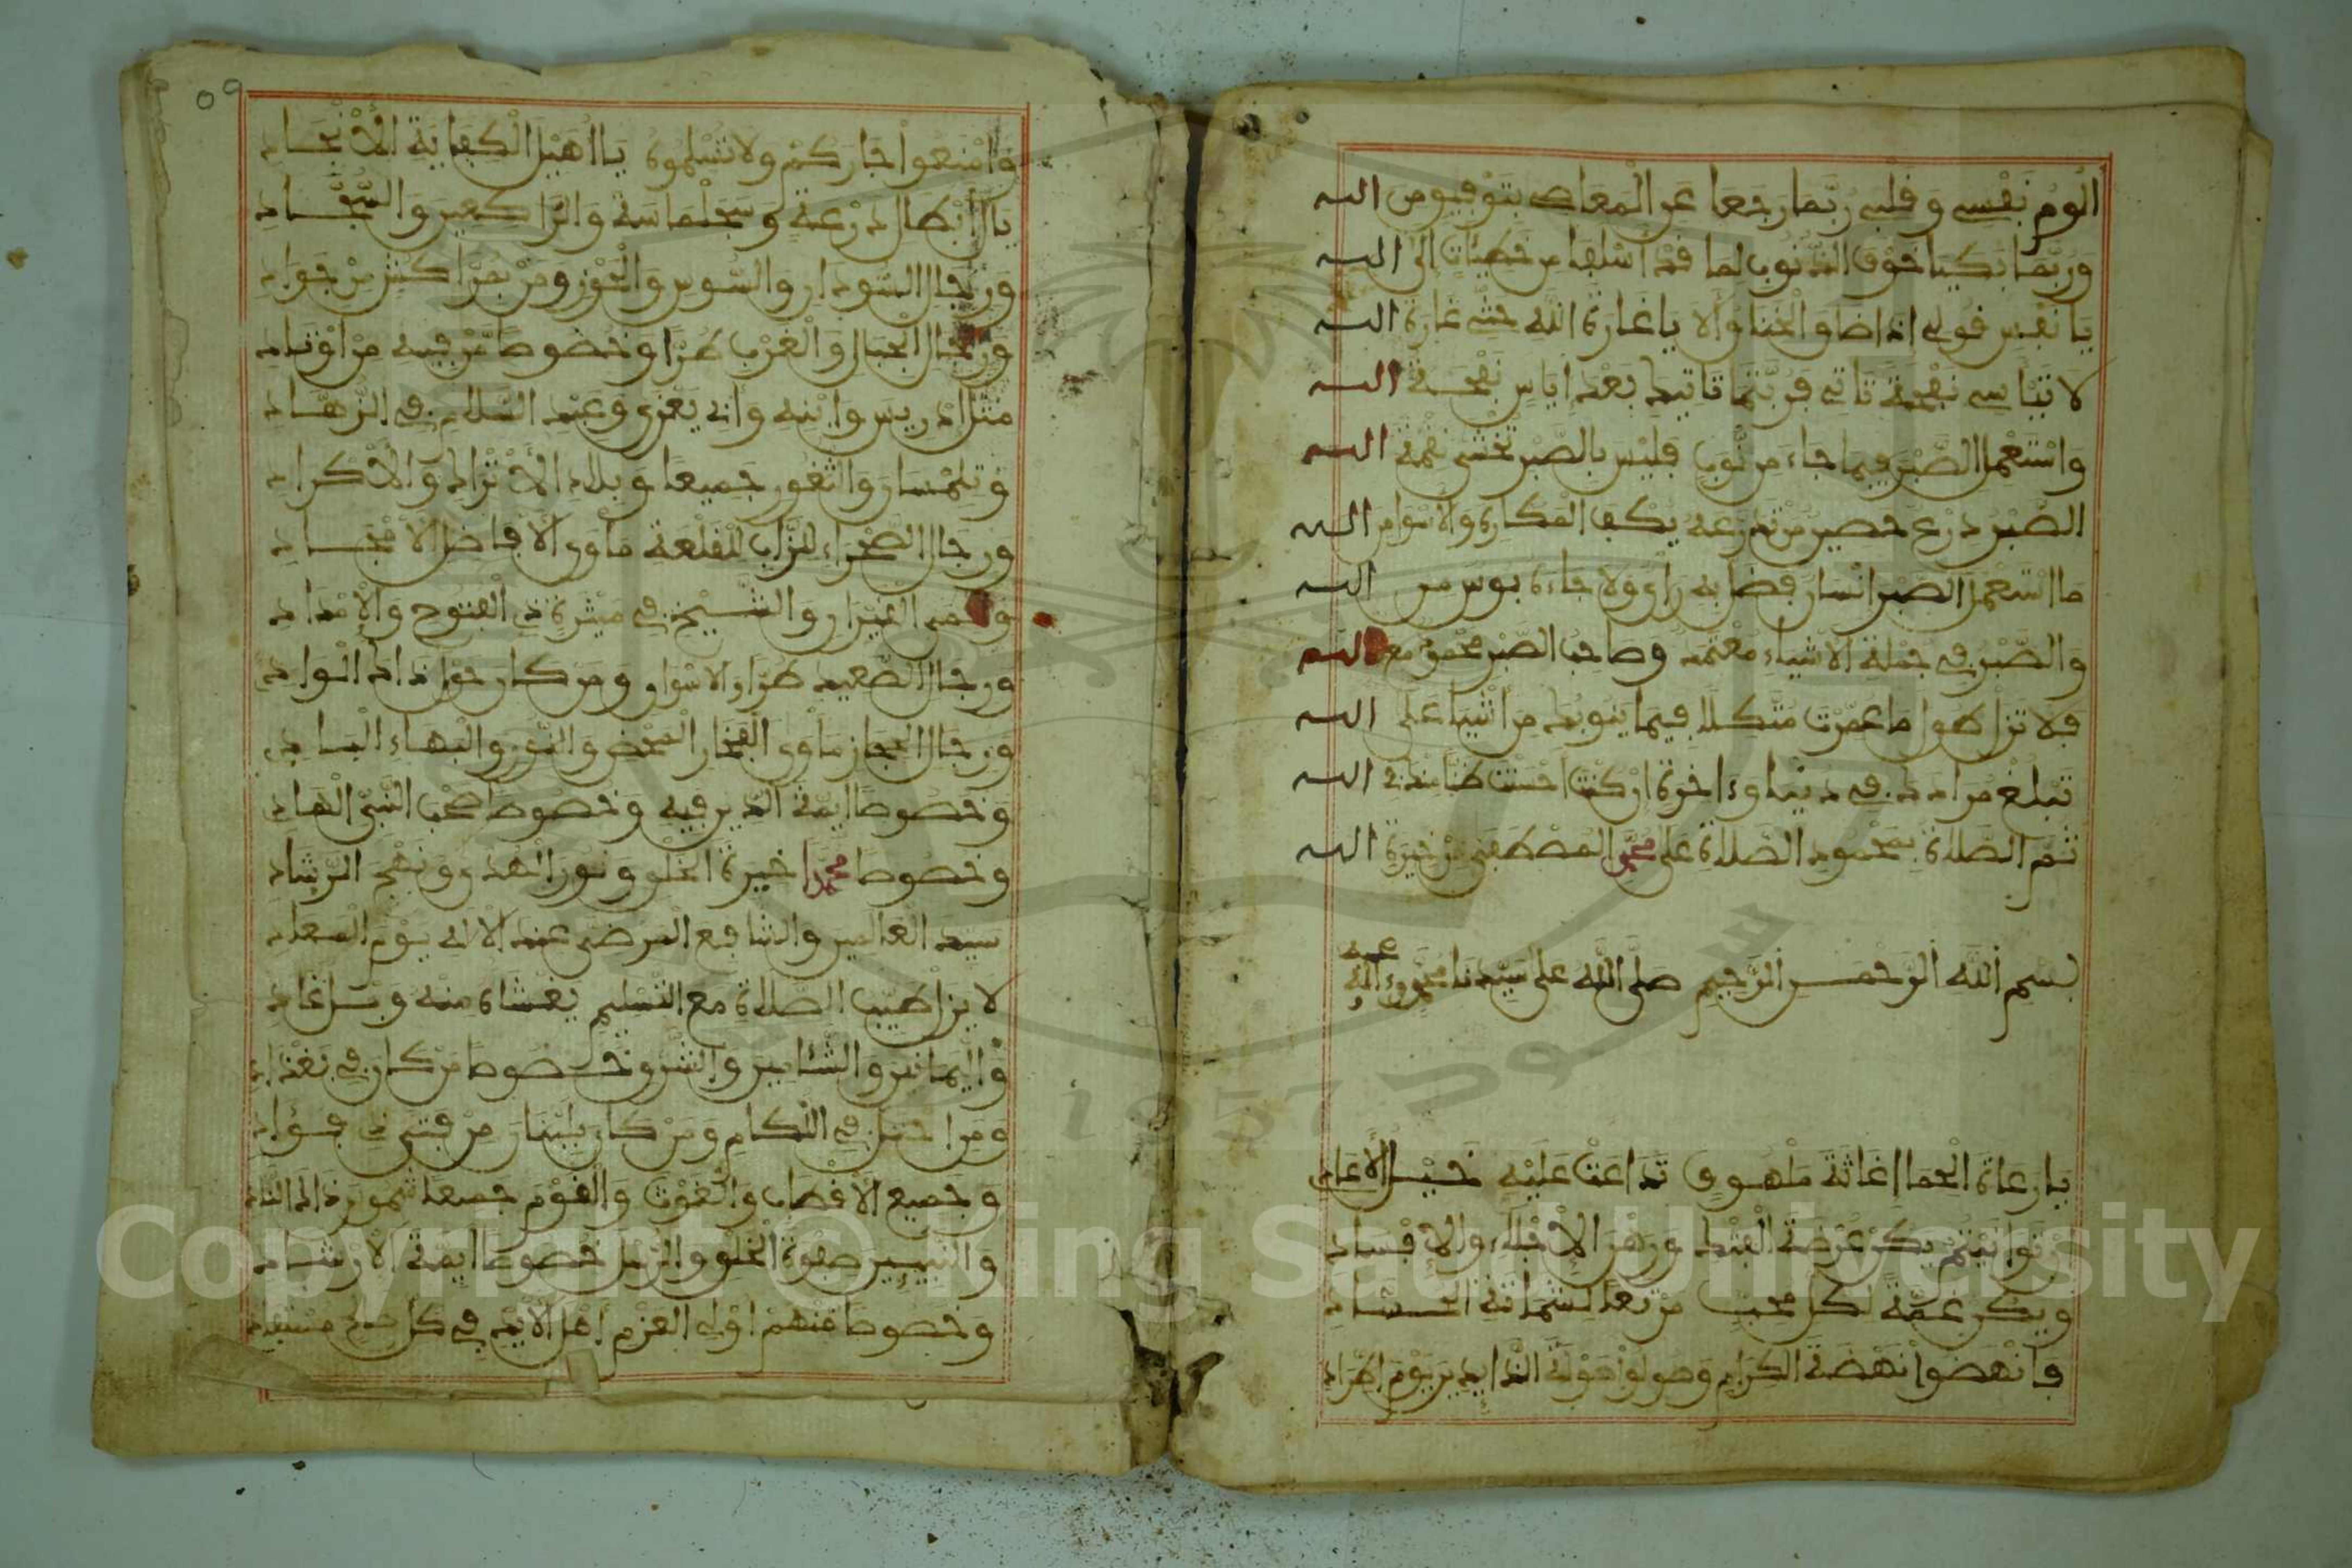 ألوم نفسي وقلبي ربما رجعا عن المعاصي بتوفيق من الله
وربما بكيا خوف الذنوب لما قد أسلفا من خطيئات إلى الله
يا نفس قولي إذا ضاق الخناق ألا يا غارة الله حثي غارة الله
لا تيأسي نفحة تأتي فربتما تأتيك بعد إياس نفحة الله
واستعمل الصبر فيما جاء من نوب فليس بالصبر تخشى نقمة الله
الصبر درع حصين من تدرعه يكف المكاره والأسوا من الله
ما استعمل الصبر إنسان فضاق به رأي ولا جاءه بوس من الله
والصبر في جملة الأشياء معتمد وصاحب الصبر محمو مع الله
فلا تزل طول ما عمرت متكلا فيما ينوبك من أشيا على الله
تبلغ مرادك في دنيا وءاخرة إن كنت أحسنت ظنا منك في الله
ثم الصلاة بمحمود الصلاة على محمد المصطفى من خيرة الله
بسم الله الرحمن الرحيم صلى الله على سيدنا محمد وءاله وصحبه
يا رعاة الحما إغاثة ملهوف تداعت عليه خيل الأعادي
إن توانيتم يكن عرضة الفتك ورهن الإخلاء والإفساد
ويكن غمة لكل محب من بعد لشماتة الحساد
وانهضوا نهضة الكرام وصولوا صولة الذايدين يوم الطراد
٥٩
وامنعوا جاركم ولا تسلموه يا أهيل الكفاية الأنجاد
يا أبطال درعة وسجلماسة والراكعين والسجاد
ورجال السودان والسوس والحوز ومن بمراكش من جواد
ورجال الجبال والغرب طرا وخصوصا من فيه من أوتاد
مثل إدريس وابنه وأبي يعزى وعبد السلام في الزهاد
وتلمسان والثغور جميعا وبلاد الأتراك والأكراد
ورجال الصحراء للزاب للقلعة مأوى الأفاضل الأمجاد
والشيخ في ميثرة ذي الفتوح والإمداد
ورجال الصعيد طرا وأسوان ومن كان حول ذاك الواد
ورجال الحجاز مأوى الفخار المحض والنور والبهاء الباد
وخصوصا أيمة الدين فيه وخصوصا صحب النبي الهاد
وخصوصا محمدا خيرة الخلق ونور الهدى ونهج الرشاد
سيد العالمين والشافع المرضي عند الإله يوم المعاد
لا يزل طيب الصلاة مع التسليم يغشاه منه وسر غاد
واليمانين والشامين والشرق وخصوصا من كان في بغداد
ومن احتل في اللكام ومن كان بلبنان من فتى ذي فؤاد
وجميع الأقطاب والغوث والقوم جميعا
والنبيين صفوة الخلق والرسل خصوصا أيمة الأرشاد
وخصوصا منهم أولي العزم أهل الأيد في كل